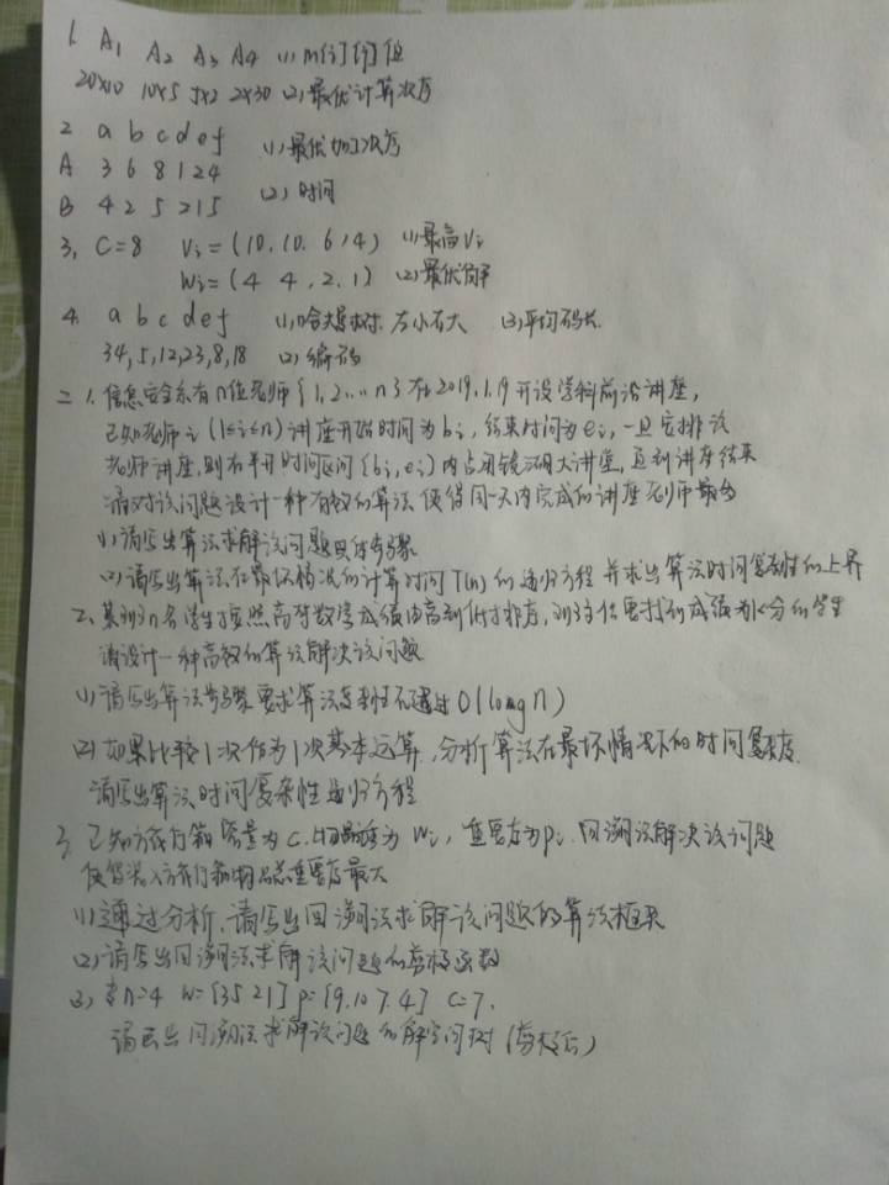 1. A₁ A₂ A₃ A₄ (1) m[i][j]值
20×10 10×5 5×2 2×30 (2) 最优计算次序
2 a b c d e f (1) 最优加工次序
A 3 6 8 1 2 4
B 4 2 5 2 1 5 (2) 时间
3, C=8 Vi=(10.10.6,4) (1) 最高Vi
Wi=(4 4,2,1) (2) 最优解
4. a b c d e f (1) 哈夫曼树.左小右大 (3) 平均码长.
34,5,12,23,8,18 (2) 编码
二 1. 信息安全系有n位老师{1,2...n}在2019.1.19开设学科前沿讲座,
已知老师i(1≤i≤n)讲座开始时间为bi,结束时间为ei,一旦安排该
老师讲座,则在半开时间区间[bi,ei)内占用镜湖大讲堂,直到讲座结束
请对该问题设计一种有效的算法使得同一天内完成的讲座老师最多
(1) 请写出算法求解该问题具体步骤
(2) 请写出算法在最坏情况的计算时间T(n)的递归方程并求出算法时间复杂性的上界
2、某班n名学生按照高等数学成绩由高到低排序,班主任要找到成绩为k分的学生
请设计一种高效的算法解决该问题
(1) 请写出算法步骤要求算法复杂性不超过O(longn)
(2) 如果比较1次作为1次基本运算,分析算法在最坏情况下的时间复杂度.
请写出算法时间复杂性递归方程
3 已知旅行箱容量为C.物品重为Wi,重要度为Pi.回溯法解决该问题
使得装入旅行箱物品总重要度最大
(1) 通过分析,请写出回溯法求解该问题的算法框架
(2) 请写出回溯法求解该问题的剪枝函数
(3) 若n=4 w=[3 5 2 1] p=[9.10 7.4] C=7.
请画出回溯法求解该问题的解空间树(剪枝后)